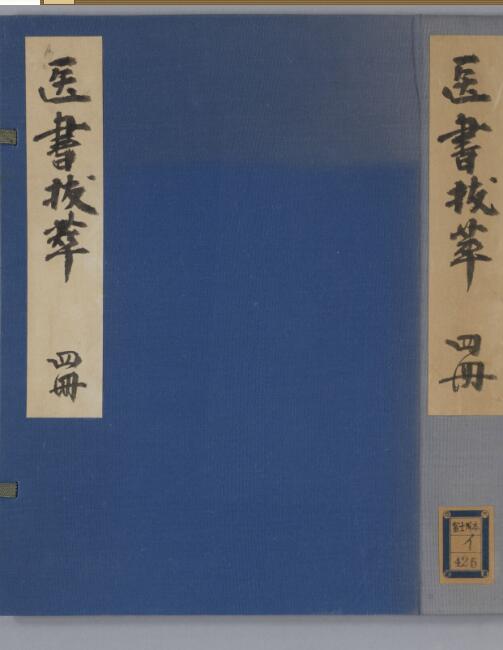 医書抜萃
四冊
医書抜萃
四冊
富士川本
イ
426